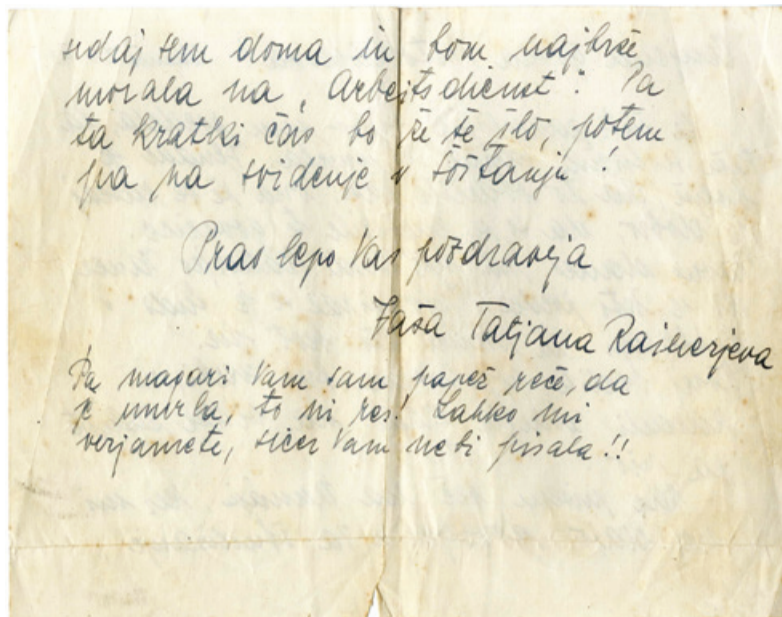 sedaj sem doma in bom najbrže
morala na „Arbeitsdienst". Pa
ta kratki čas bo že še šlo, potem
pa na svidenje v Šoštanju!
Prav lepo Vas pozdravlja
Vaša Tatjana Rajnerjeva
Pa magari Vam sam papež reče, da
je umrla, to ni res! Lahko mi
verjamete, sicer Vam ne bi pisala!!